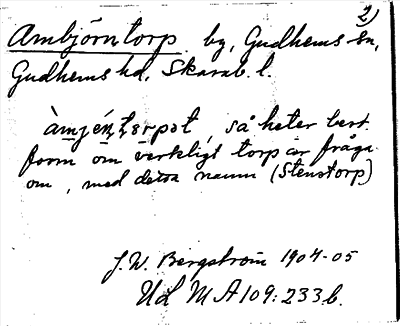 2)
Ambjörntorp by, Gudhems sn,
Gudhems hd, Skarab. l.
àmjén,t,ɛrpət, så heter best.
form om verkligt torp är fråga
om, med detta namn (Stenstorp)
J. W. Bergström 1904-05
ULMA 109:233 b.